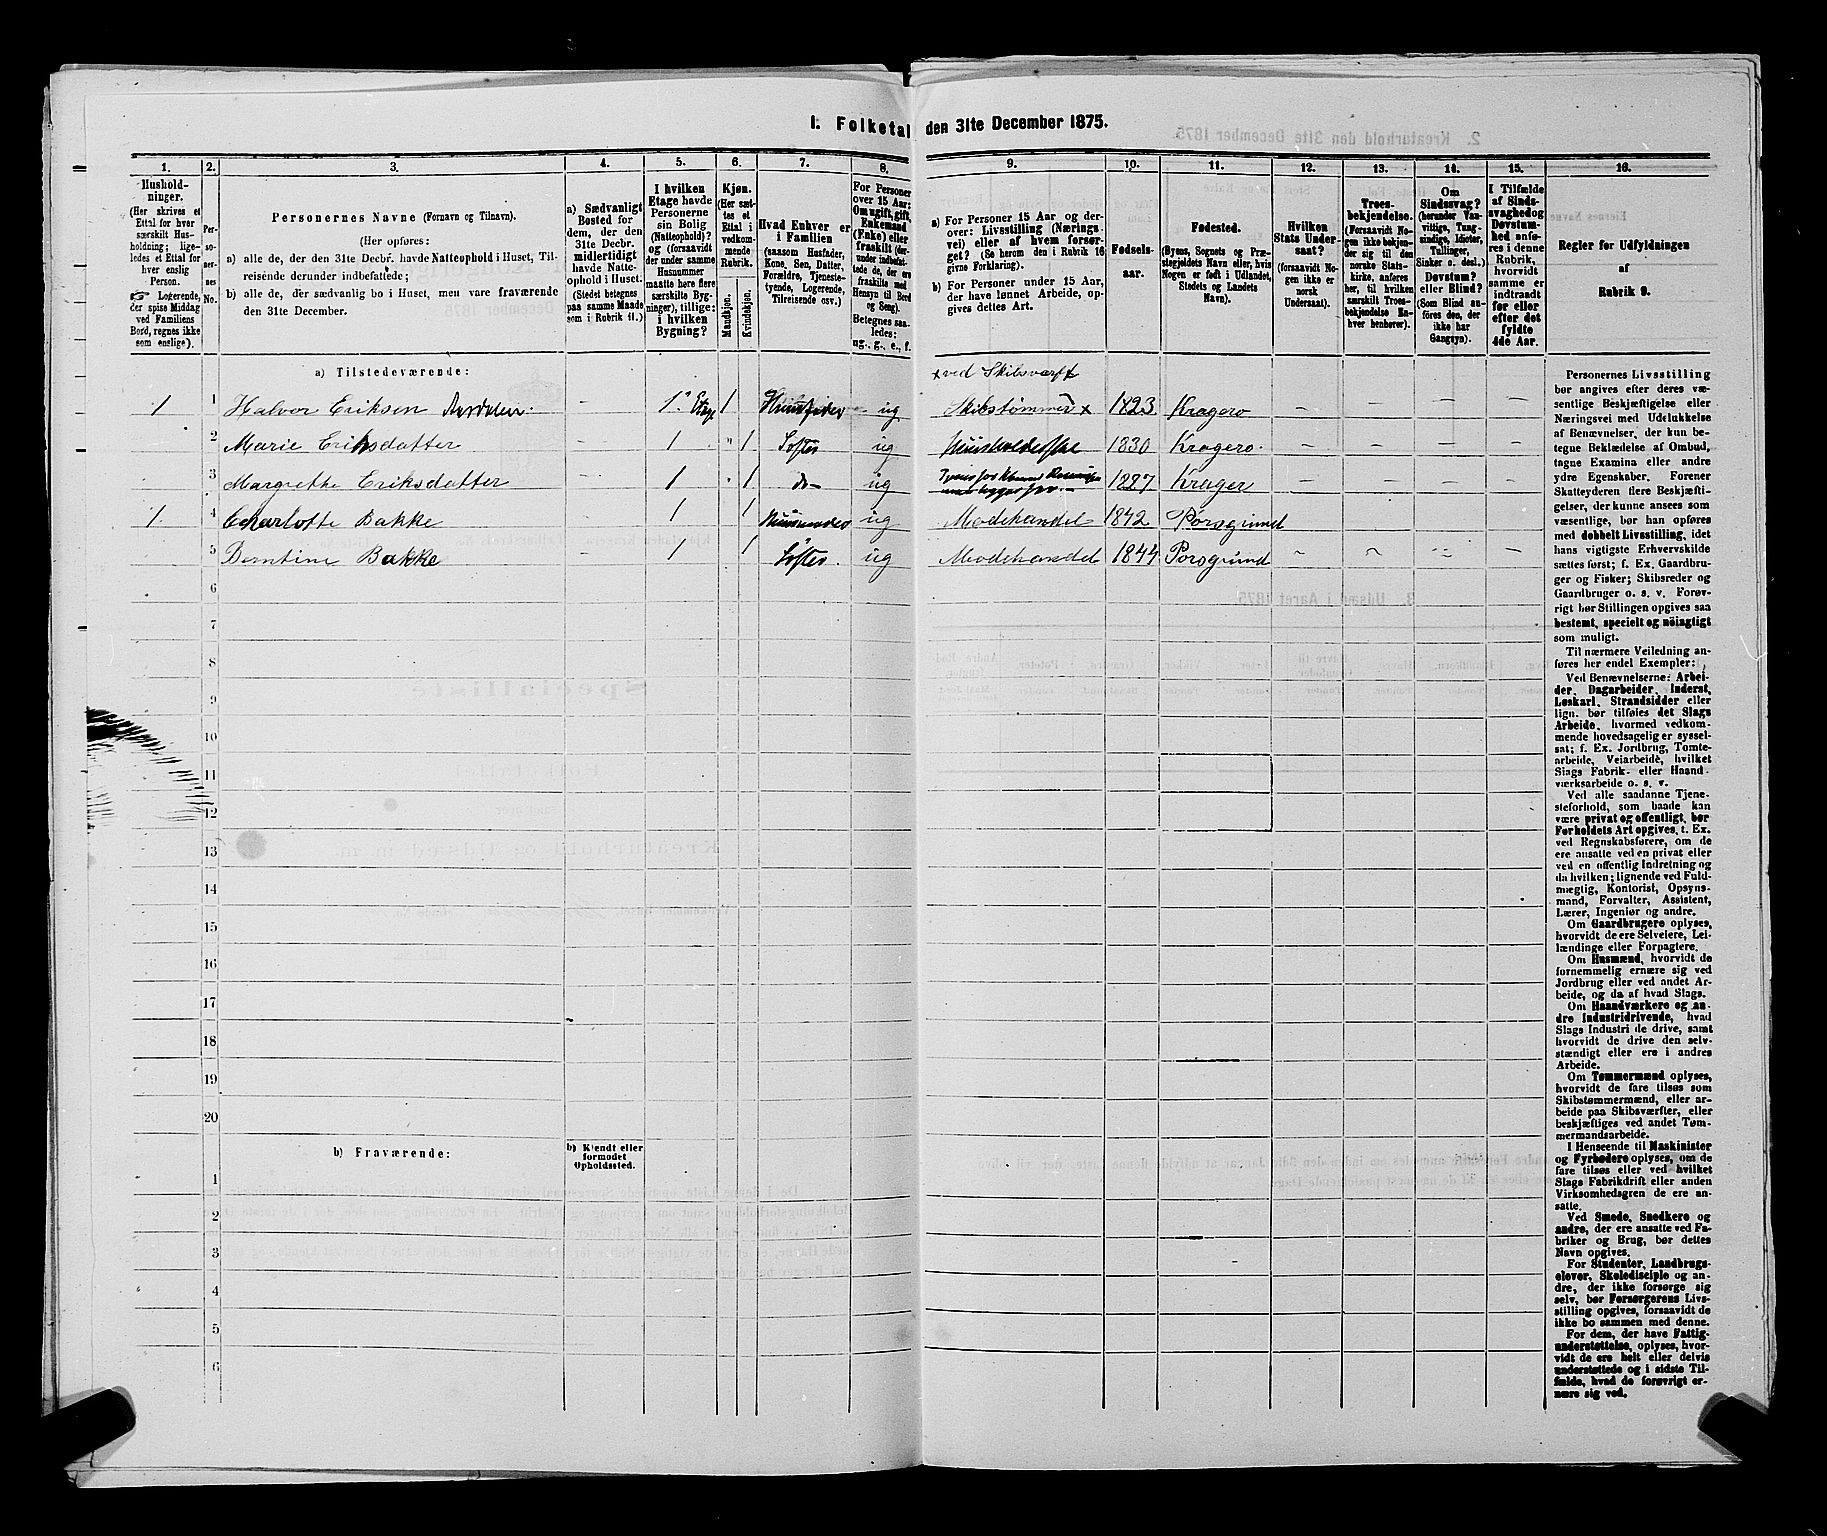 1. Folketal den 31te December 1875.
1. 2. 3. 4. 5. 6. 7. 8. 9. 10. 11. 12. 13. 14. 15. 16.
Hushold-
ninger.
(Her skrives et
Ettal for hver
særskilt Hus-
holdning; lige-
ledes et Ettal for
hver enslig
Person.
☞ Logerende,
der spise Middag
ved Familiens
Bord, regnes ikke
som enslige).
Per-
so-
ner-
nes
No.
Personernes Navne (Fornavn og Tilnavn).
(Her opføres:
a) alle de, der den 31te Decbr. havde Natteophold i Huset, Til-
reisende derunder indbefattede;
b) alle de, der sædvanlig bo i Huset, men vare fraværende
den 31te December.
a) Sædvanligt
Bosted for
dem, der den
31te Decbr.
midlertidigt
havde Natte-
ophold i Huset.
(Stedet betegnes
paa samme Maade
som i Rubrik 11.)
I hvilken
Etage havde
Personerne
sin Bolig
(Natteophold)?
og (forsaavidt
der under samme
Husnummer
maatte høre flere
særskilte Byg-
ninger), tillige:
i hvilken
Bygning?
Kjøn.
(Her sæt-
tes et
Ettal i
vedkom-
mende
Rubrik.
Mandkjøn.
Kvindekjøn.
Hvad Enhver er
i Familien
(saasom Husfader,
Kone, Søn, Datter,
Forældre, Tjeneste-
tyende, Logerende,
Tilreisende osv.)
For Personer
over 15 Aar:
Om ugift, gift,
Enkemand
(Enke) eller
fraskilt (der-
under indbefat-
tede de, der ere
fraskilte med
Hensyn til Bord
og Seng).
Betegnes saa-
ledes:
ug., g., e., f.
a) For Personer 15 Aar og der-
over: Livsstilling (Nærings-
vei) eller af hvem forsør-
get? (Se herom den i Rubrik 16
givne Forklaring).
b) For Personer under 15 Aar,
der have lønnet Arbeide, op-
gives dettes Art.
Fødsels-
aar.
Fødested.
(Byens, Sognets og Præ-
stegjeldets Navn eller, hvis
Nogen er født i Udlandet,
Stedets og Landets
Navn).
Hvilken
Stats Under-
saat?
(forsaavidt No-
gen ikke er
norsk
Undersaat).
Troes-
bekjendelse.
(Forsaavidt No-
gen ikke bekjen-
der sig til den
norske Stats-
kirke, anføres
her, til hvilken
særskilt Troes-
bekjendelse En-
hver henhører).
Om
Sindssvag?
(herunder Van-
vittige, Tung-
sindige, Idioter,
Tullinger,
Sinker o. desl.)
Døvstum?
eller Blind?
(Som Blind an-
føres den, der
ikke har
Gangsyn).
I Tilfælde
af Sinds-
svaghed og
Døvstum-
hed anfø-
res i denne
Rubrik,
hvorvidt
samme er
indtraadt
før eller
efter det
fyldte
4de Aar.
Regler for Udfyldningen
af
Rubrik 9.
a) Tilstedeværende:
× ved Skibsværft
1 1 Halvor Eriksen Aasdalen. – 1ste Etage 1 Huusfader ug Skibstømmer × 1823 Kragerø – – – –
2 Marie Eriksdatter – 1 " 1 Søster ug Huusholderske 1830 Kragerø. – – – –
3 Margrethe Eriksdatter – 1 1 do – ug 1827 Krager – – – –
1. 4 Charlotte Bakke 1 1 ug Modehandel 1842 Porsgrund
5 Berntine Bakke – 1 1 Søster. ug Modehandel 1844 Porsgrund – – – –
6
7
8
9
10
11
12
13
14
15
16
17
18
19
20
b) Fraværende:
b) Kjendt eller
formodet
Opholdssted.
1
2
3
4
5
6
Personernes Livsstilling
bør angives efter deres væ-
sentlige Beskjæftigelse eller
Næringsvei med Udelukkelse
af Benævnelser, der kun be-
tegne Beklædelse af Ombud,
tagne Examina eller andre
ydre Egenskaber. Forener
Skatteyderen flere Beskjæfti-
gelser, der kunne ansees som
væsentlige, bør han opføres
med dobbelt Livsstilling, idet
hans vigtigste Erhvervskilde
sættes først; f. Ex. Gaardbru-
ger og Fisker; Skibsreder og
Gaardbruger o. s. v. Forøv-
rigt bør Stillingen opgives saa
bestemt, specielt og nøiagtigt
som muligt.
Til nærmere Veiledning an-
føres her endel Exempler:
Ved Benævnelserne: Arbei-
der, Dagarbeider, Inderst,
Løskarl, Strandsidder eller
lign. bør tilføies det Slags
Arbeide, hvormed vedkom-
mende hovedsagelig er syssel-
sat; f. Ex. Jordbrug, Tomte-
arbeide, Veiarbeide, hvilket
Slags Fabrik- eller Haand-
værksarbeide o. s. v.
Ved alle saadanne Tjene-
steforhold, som baade kan
være privat og offentligt, bør
Forholdets Art opgives, t. Ex.
ved Regnskabsførere, om de
ere ansatte ved en privat eller
ved en offentlig Indretning og
da hvilken; lignende ved Fuld-
mægtig, Kontorist, Opsyns-
mand, Forvalter, Assistent,
Lærer, Ingeniør og andre.
Om Gaardbrugere oplyses,
hvorvidt de ere Selveiere, Lei-
lændinge eller Forpagtere.
Om Husmænd, hvorvidt de
fornemmelig ernære sig ved
Jordbrug eller ved andet Ar-
beide, og da af hvad Slags.
Om Haandværkere og an-
dre Industridrivende, hvad
Slags Industri de drive, samt
hvorvidt de drive den selv-
stændigt eller ere i andres
Arbeide.
Om Tømmermænd oplyses,
hvorvidt de fare tilsøs som
Skibstømmermænd, eller ar-
beide paa Skibsværfter, eller
beskjæftiges ved andet Tøm-
mermandsarbeide.
I Henseende til Maskinister
og Fyrbødere oplyses, om de
fare tilsøs eller ved hvilket
Slags Fabrikdrift eller anden
Virksomhedsgren de ere an-
satte.
Ved Smede, Snedkere og
andre, der ere ansatte ved Fa-
briker og Brug, bør dettes
Navn opgives.
For Studenter, Landbrugs-
elever, Skoledisciple og an-
dre, der ikke forsørge sig
selv, bør Forsørgerens Livs-
stilling opgives, forsaavidt de
ikke bo sammen med denne.
For dem, der have Fattig-
understøttelse, oplyses, hvor-
vidt de ere helt eller delvis
understøttede og i sidste Til-
fælde, hvad de forøvrigt er-
nære sig ved.